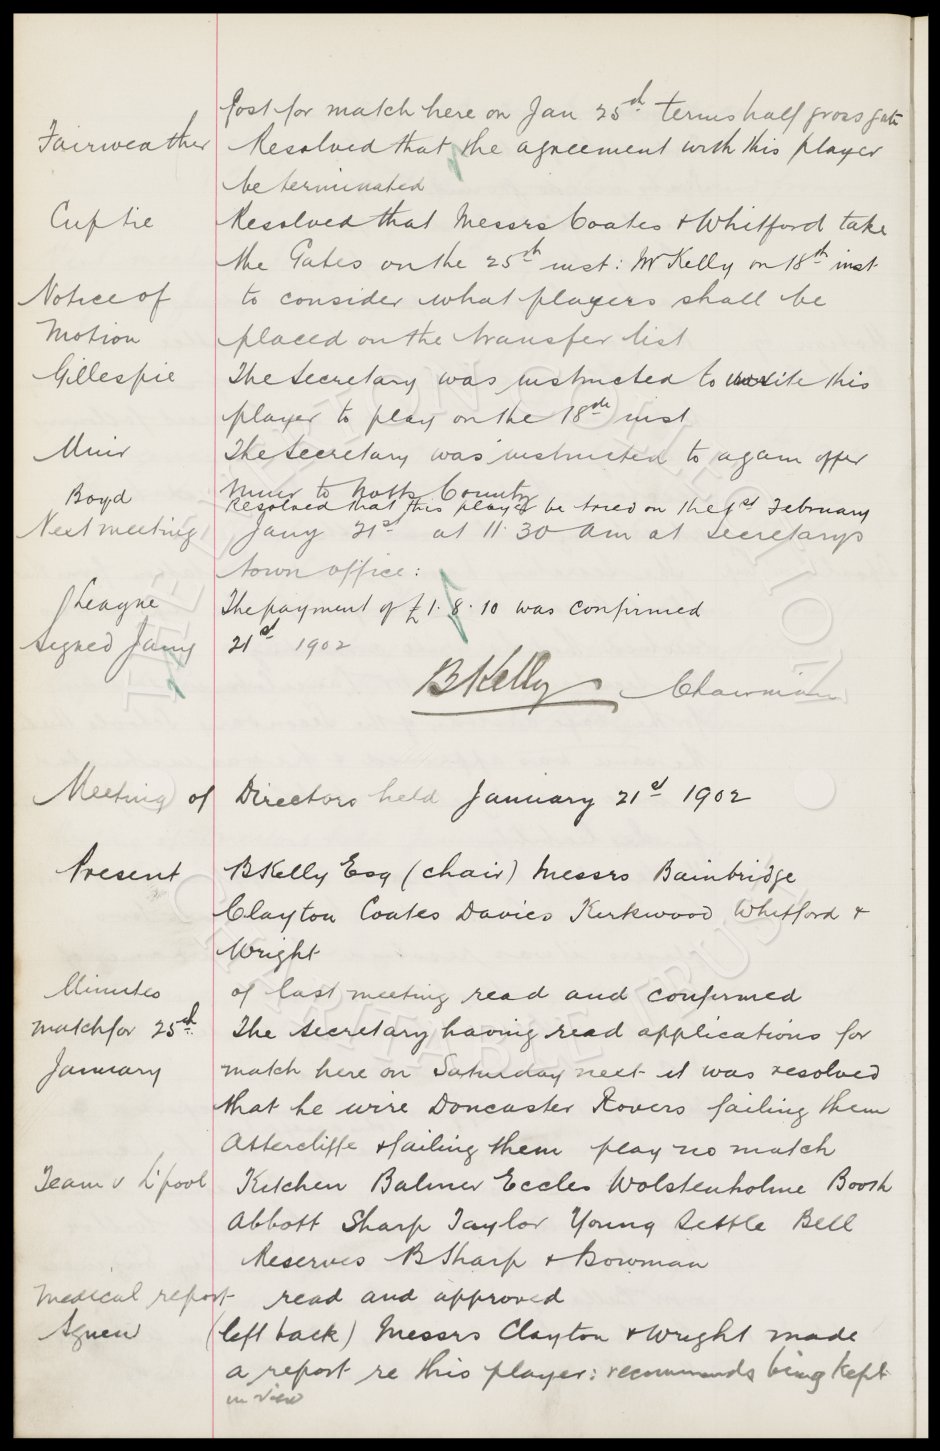 Post for match here on Jan 25th terms half gross gate
Fairweather Resolved that the agreement with this player
be terminated
Cup tie Resolved that Messrs Coates & Whitford take
the Gates on the 25th inst: Mr Kelly on 18th inst
Notice of to consider what players shall be
Motion placed on the transfer list
Gillespie The Secretary was instructed to write this
player to play on the 18th inst
Muir The Secretary was instructed to again offer
Muir to Notts County
Boyd Resolved that this player be tried on the 1st February
Next meeting Jany 21st at 11.30 am at Secretarys
town office:
League The payment of £1.8.10 was confirmed
Signed Jany 21st 1902
BKelly Chairman
Meeting of Directors held January 21st 1902
Present BKelly Esq (chair) Messrs Bainbridge
Clayton Coates Davies Kirkwood Whitford &
Wright
Minutes of last meeting read and confirmed
Match for 25th The Secretary having read applications for
January match here on Saturday next it was resolved
that he wire Doncaster Rovers failing them
Attercliffe & failing them play no match
Team v L'pool Kitchen Balmer Eccles Wolstenholme Booth
Abbott Sharp Taylor Young Settle Bell
Reserves B Sharp & Bowman
Medical report read and approved
Agnew (left back) Messrs Clayton & Wright made
a report re this player: recommends being kept
in view